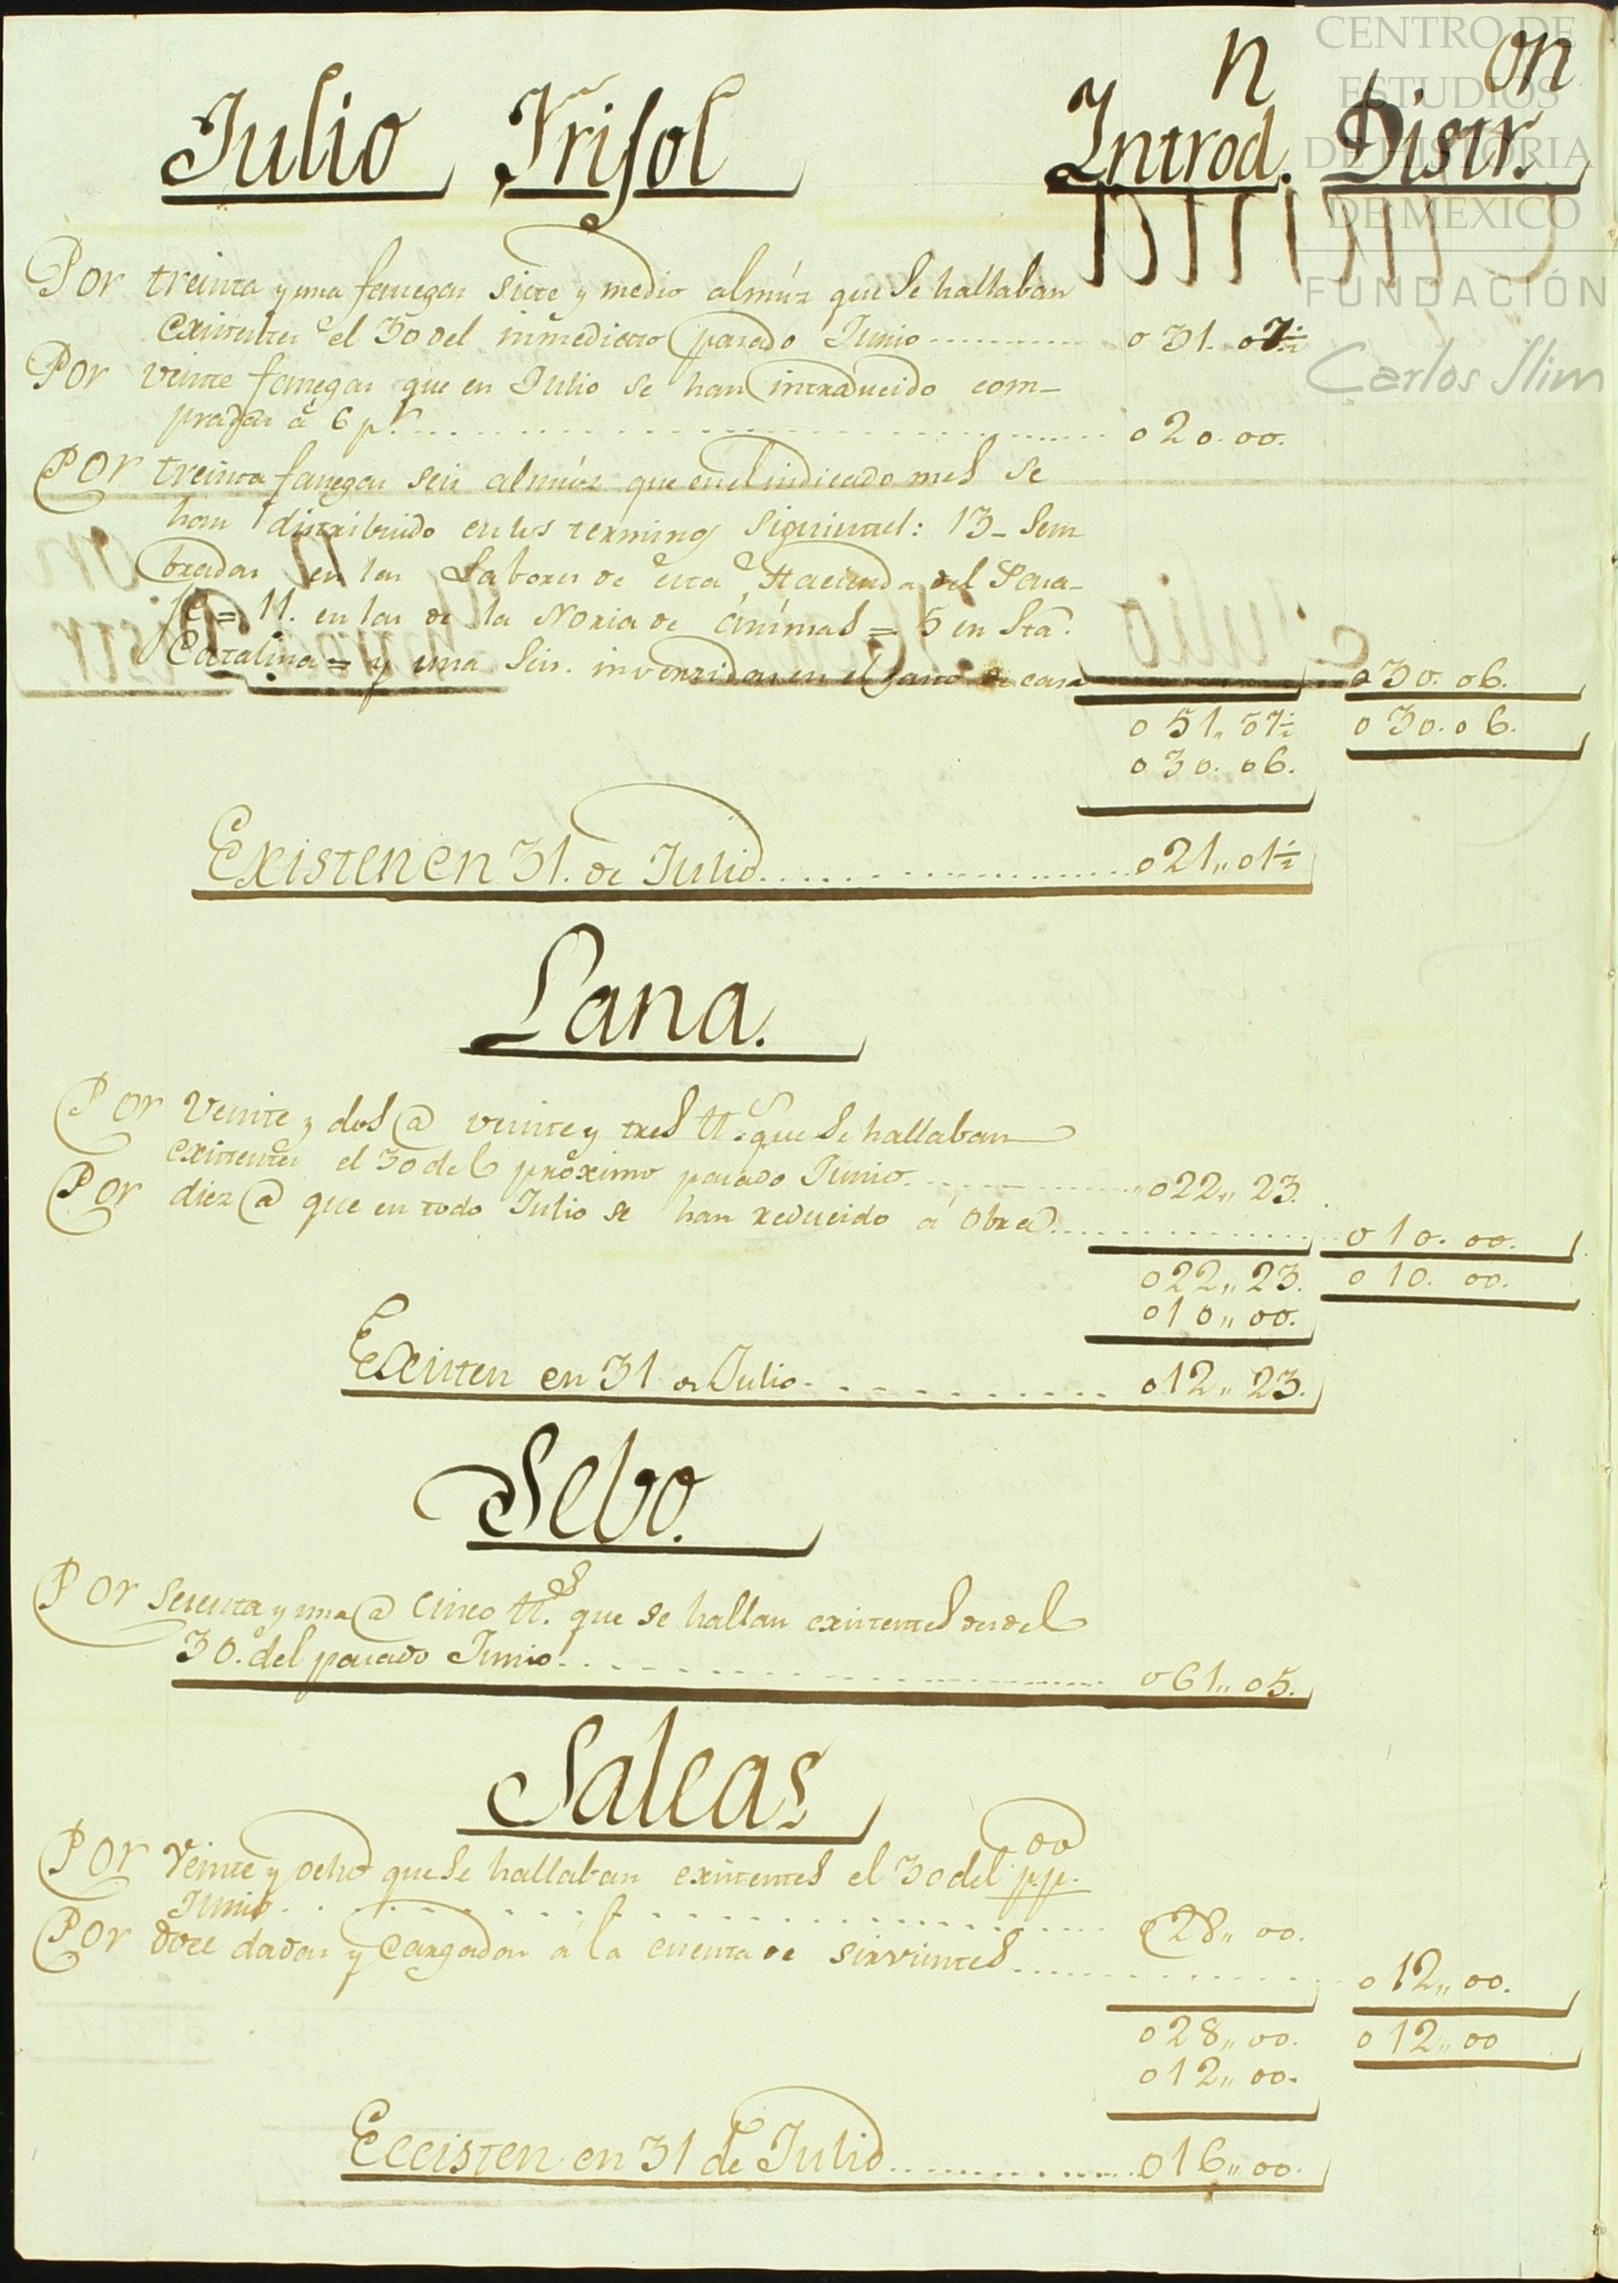 CENTRO DE
ESTUDIOS
DE HISTORIA
DE MEXICO
FUNDACIÓN
Carlos Slim
Julio Frisol Introd.n Distr.on
Por treinta y una fanegas siete y medio almúz que se hallaban
existentes el 30 del inmediato pasado Junio 031.07½
Por veinte fanegas que en Julio se han intraducido com-
pradas á 6 p.s 020.00.
Por treinta fanegas seis almúz que en el indicado mes se
han distribuido en los terminos siguientes: 13_ Sem
bradas en las Labores de esta Hacienda del Pasa-
je = 11. en las de la Noria de Animas = 5 en Sta.
Catalina = y una seis. invertidas en el gasto de casa 030.06.
051,,07½ 030.06.
030.06.
Existen en 31. de Julio 021,,01½
Lana.
Por Veinte y dos @ veinte y tres tt.s que se hallaban
existentes el 30 del próximo pasado Junio 022,,23.
Por diez @ que en todo Julio se han reducido á Obra 010.00.
022,,23. 010.00.
010,,00.
Existen en 31 de Julio 012,,23.
Sebo.
Por Sesenta y una @ cinco tt.s que se hallan existentes desde el
30. del pasado Junio 061,,05.
Saleas
Por Veinte y ocho que se hallaban existentes el 30 del pp.do
Junio 028,,00.
Por doce dadas y cargadas a la cuenta de sirvientes 012,,00.
028,,00. 012,,00
012,,00.
Eccisten en 31 de Julio 016,,00.